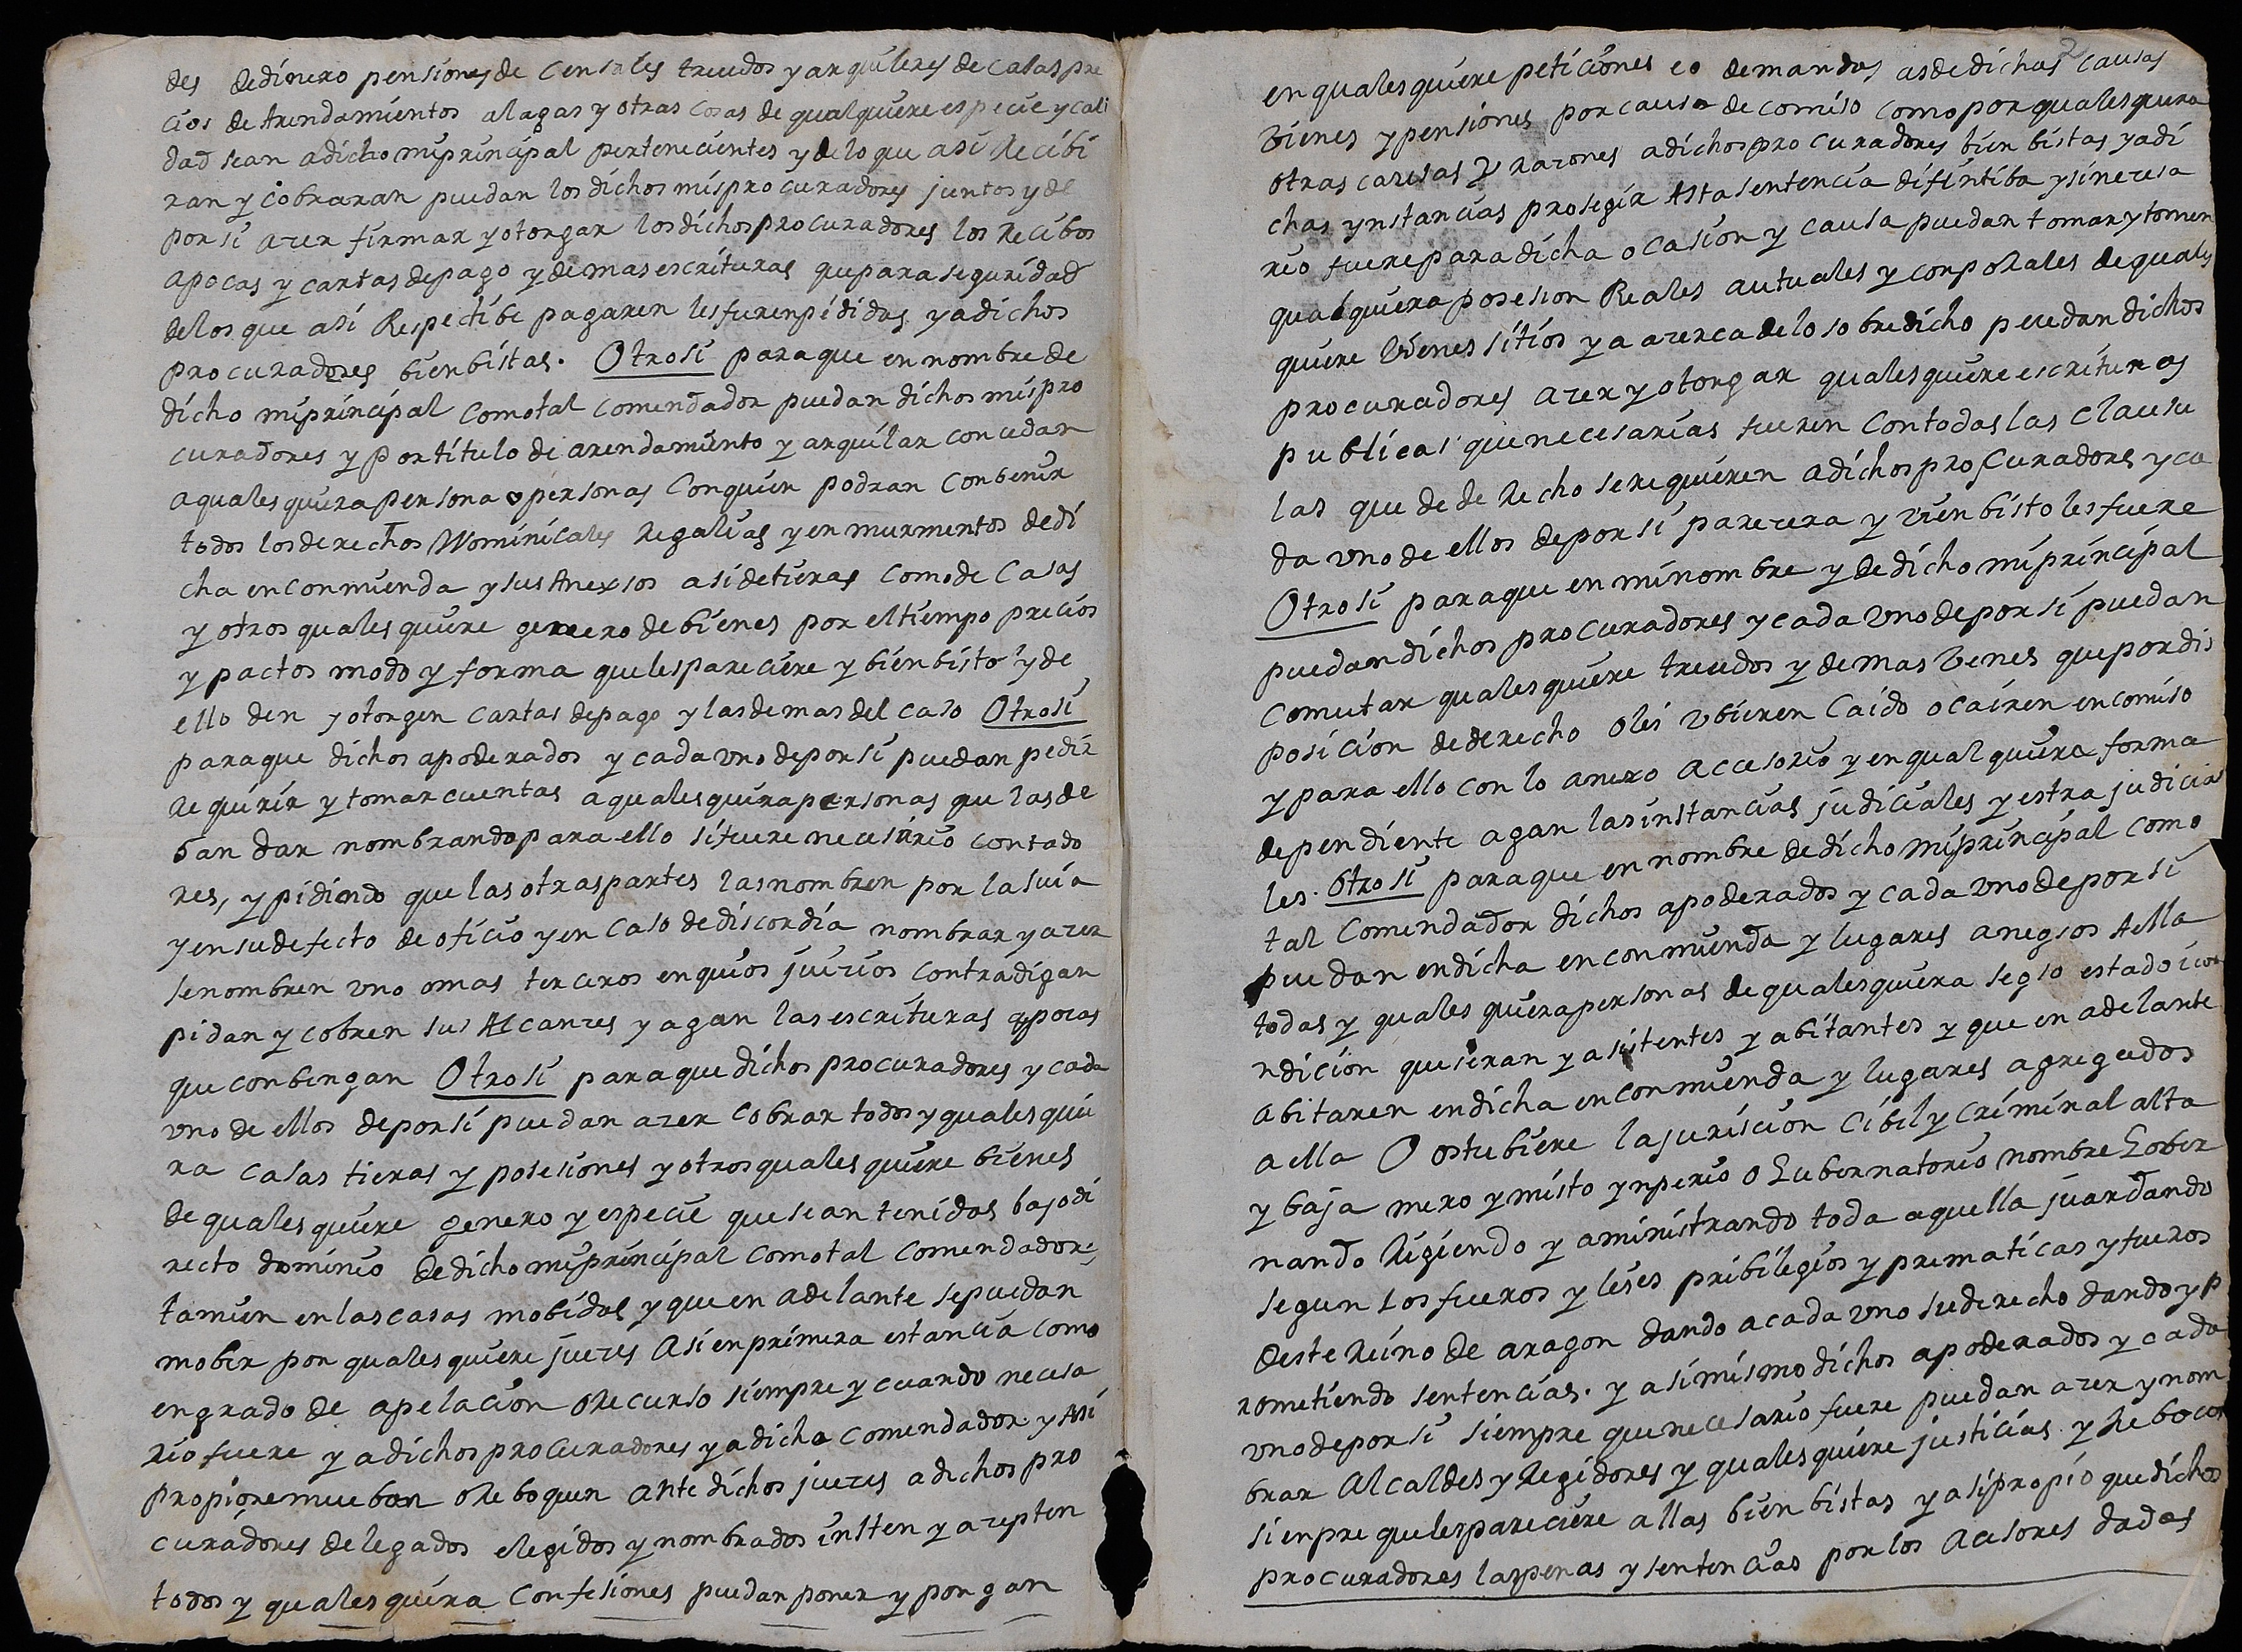 des dedinero pensiones de Censales treudos y arquileres de casas pre
cios de Arendamientos alagas y otras cosas de qualquiere especie y cali
dad sean adicho miprincipal pertenecientes y delo que asi Recibi
ran y cobraran puedan los dichos mis procuradores juntos y de
por si azer firmar y otorgar los dichos procuradores los Recibos
apocas y cartas depago y demas escrituras quepara seguridad
delos que asi Respectibe pagaren les furen pedidas y adichos
procuradores bien bistas. Otrosi para que en nombre de
dicho miprincipal como tal comendador puedan dichos mis pro
curadores y por titulo de arendamiento y arquilar concedan
aqualesquiera persona o personas Conquien podran Conbenir
todos los derechos Dominicales Regalias y enmurmentos dedi
cha enconmienda y sus Anexsos asi detieras como de Casas
y otros quales quiere genero de bienes por eltiempo precios
y pactos modo y forma que les pareciere y bien bisto y de
ello den y otorgen Cartas depago y lasdemas del caso Otrosi
para que dichos apoderados y cada uno depor si puedan pedir
Requirir y tomar cuentas aqualesquira personas que las de
ban dar nombrando para ello si fuere necesario contado
res, y pidiendo que las otras partes las nombren por la suia
y en su defecto de oficio y en Caso de discordia nombrar y azer
senombren uno omas terceros en quios juicios contradigan
pidan y cobren sus Alcanzes y agan las escrituras apocas
que conbengan Otrosi para que dichos procuradores y cada
uno de ellos depor si puedan azer Cobrar todos y qualesqui
ra casas tieras y posesiones y otros quales quiere bienes
de quales quiere genero y especie que sean tenidas bajo di
recto dominio dedicho miprincipal como tal Comendador
tamien en las casas mobidas y que en adelante sepuedan
mober por quales quiere juezes Asi en primera estancia como
en grado de apelacion o Recurso siempre y cuando necesa
rio fuere y adichos procuradores y adicho comendador y Asi
propio remueban o Reboquen ante dichos juezes adichos pro
curadores delegados elegidos y nombrados insten y azepten
todos y quales quira Confesiones puedan poner y pongan
2
en quales quiere peticiones eo demandas as de dichas causas
bienes y pensiones por causa de comiso como por quales quira
otras causas y razones adichos procuradores bien bistas y adi
chas ynstancias prosegir Asta sentencia difintiba y sinecesa
rio fuere para dicha ocasion y causa puedan tomar y tomen
qualquiera posesion Reales autuales y corporales de quales
quiere bienes sitios y a azerca delo sobredicho puedan dichos
procuradores azer y otorgar quales quiere escrituras
publicas que necesarias fueren con todas las clausu
las que de de Recho se requieren adichos procuradores y ca
da uno de ellos depor si parezera y bien bisto les fuere
Otrosi para que en minombre y de dicho miprincipal
puedan dichos procuradores y cada uno depor si puedan
Comutar quales quiere treudos y demas bienes que por dis
posicion de derecho oles ubieren Caido o cairen en comiso
y para ello con lo anexo accesorio y en qualquiera forma
dependiente agan las instancias judiciales y estra judicia
les. Otrosi para que en nombre de dicho miprincipal como
tal Comendador dichos apoderados y cada uno depor si
puedan endicha enconmienda y lugares anegsos Aella
todas y quales quiera personas de quales quiera segso estado i co
ndicion que sieran y asistentes y abitantes y que en adelante
abitaren en dicha enconmienda y lugares agregados
aella O ostubiere la jurisicion Cibil y Criminal alta
y baja mero y misto ynperio o Gubernatorio nombre Gober
nando Rigiendo y aministrando toda aquella juardando
segun los fueros y leies pribilegios y prematicas y fueros
deste Reino de aragon dando acada uno su derecho dando y p
rometiendo sentencias. y asi mismo dichos apoderados y cada
uno depor si siempre que necesario fuere puedan azer y nom
brar Alcaldes y Regidores y quales quiere justicias y Rebocar
sienpre que les pareciere allas bien bistas y asi propio que dichos
procuradores las penas y sentencias por los Acesores dadas